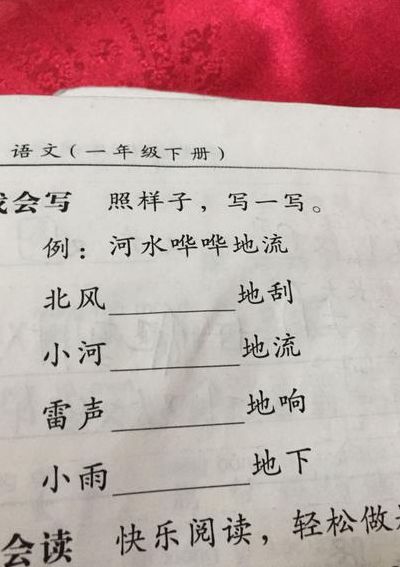 语文(一年级下册)
我会写 照样子,写一写。
例:河水哗哗地流
北风________地刮
小河________地流
雷声________地响
小雨________地下
会读 快乐阅读,轻松做